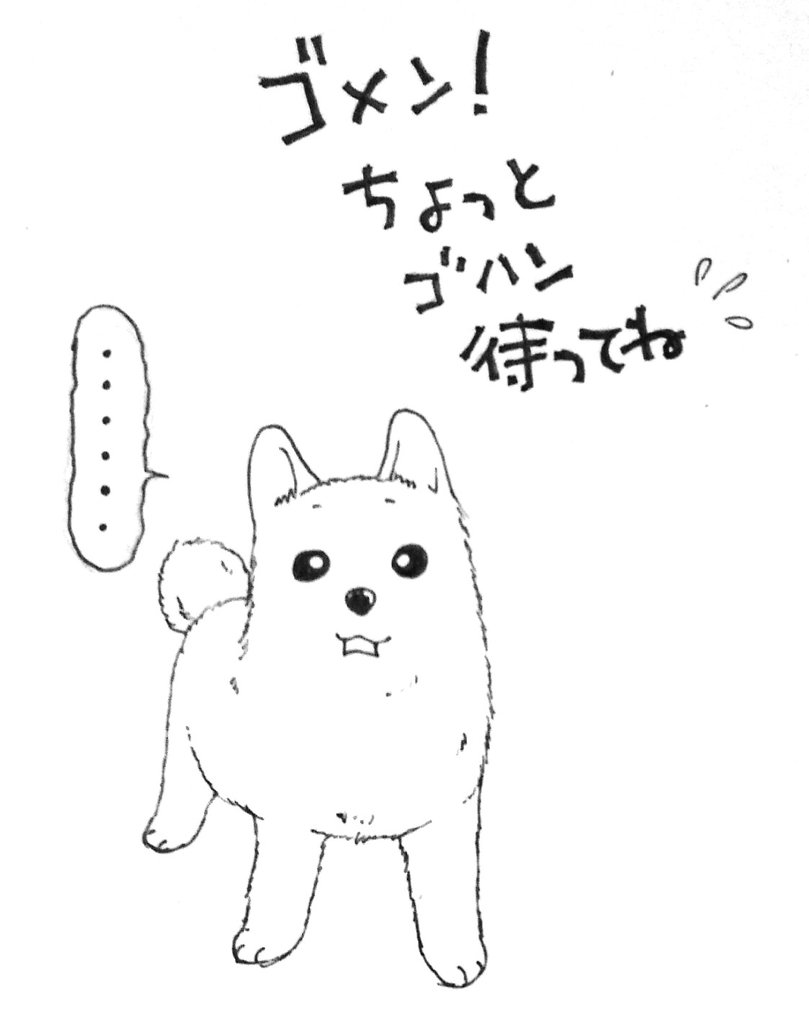 ゴメン!
ちょっと
ゴハン
待ってね
・・・・・・